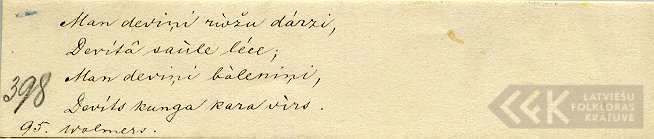 Man deviņi rožu dárzi,
Devítâ saùle léce;
Man deviņi bàleniņi,
398
Devíts kunga kara vìrs.
95. Wolmers.
LATVIEŠU
FOLKLORAS
KRĀTUVE